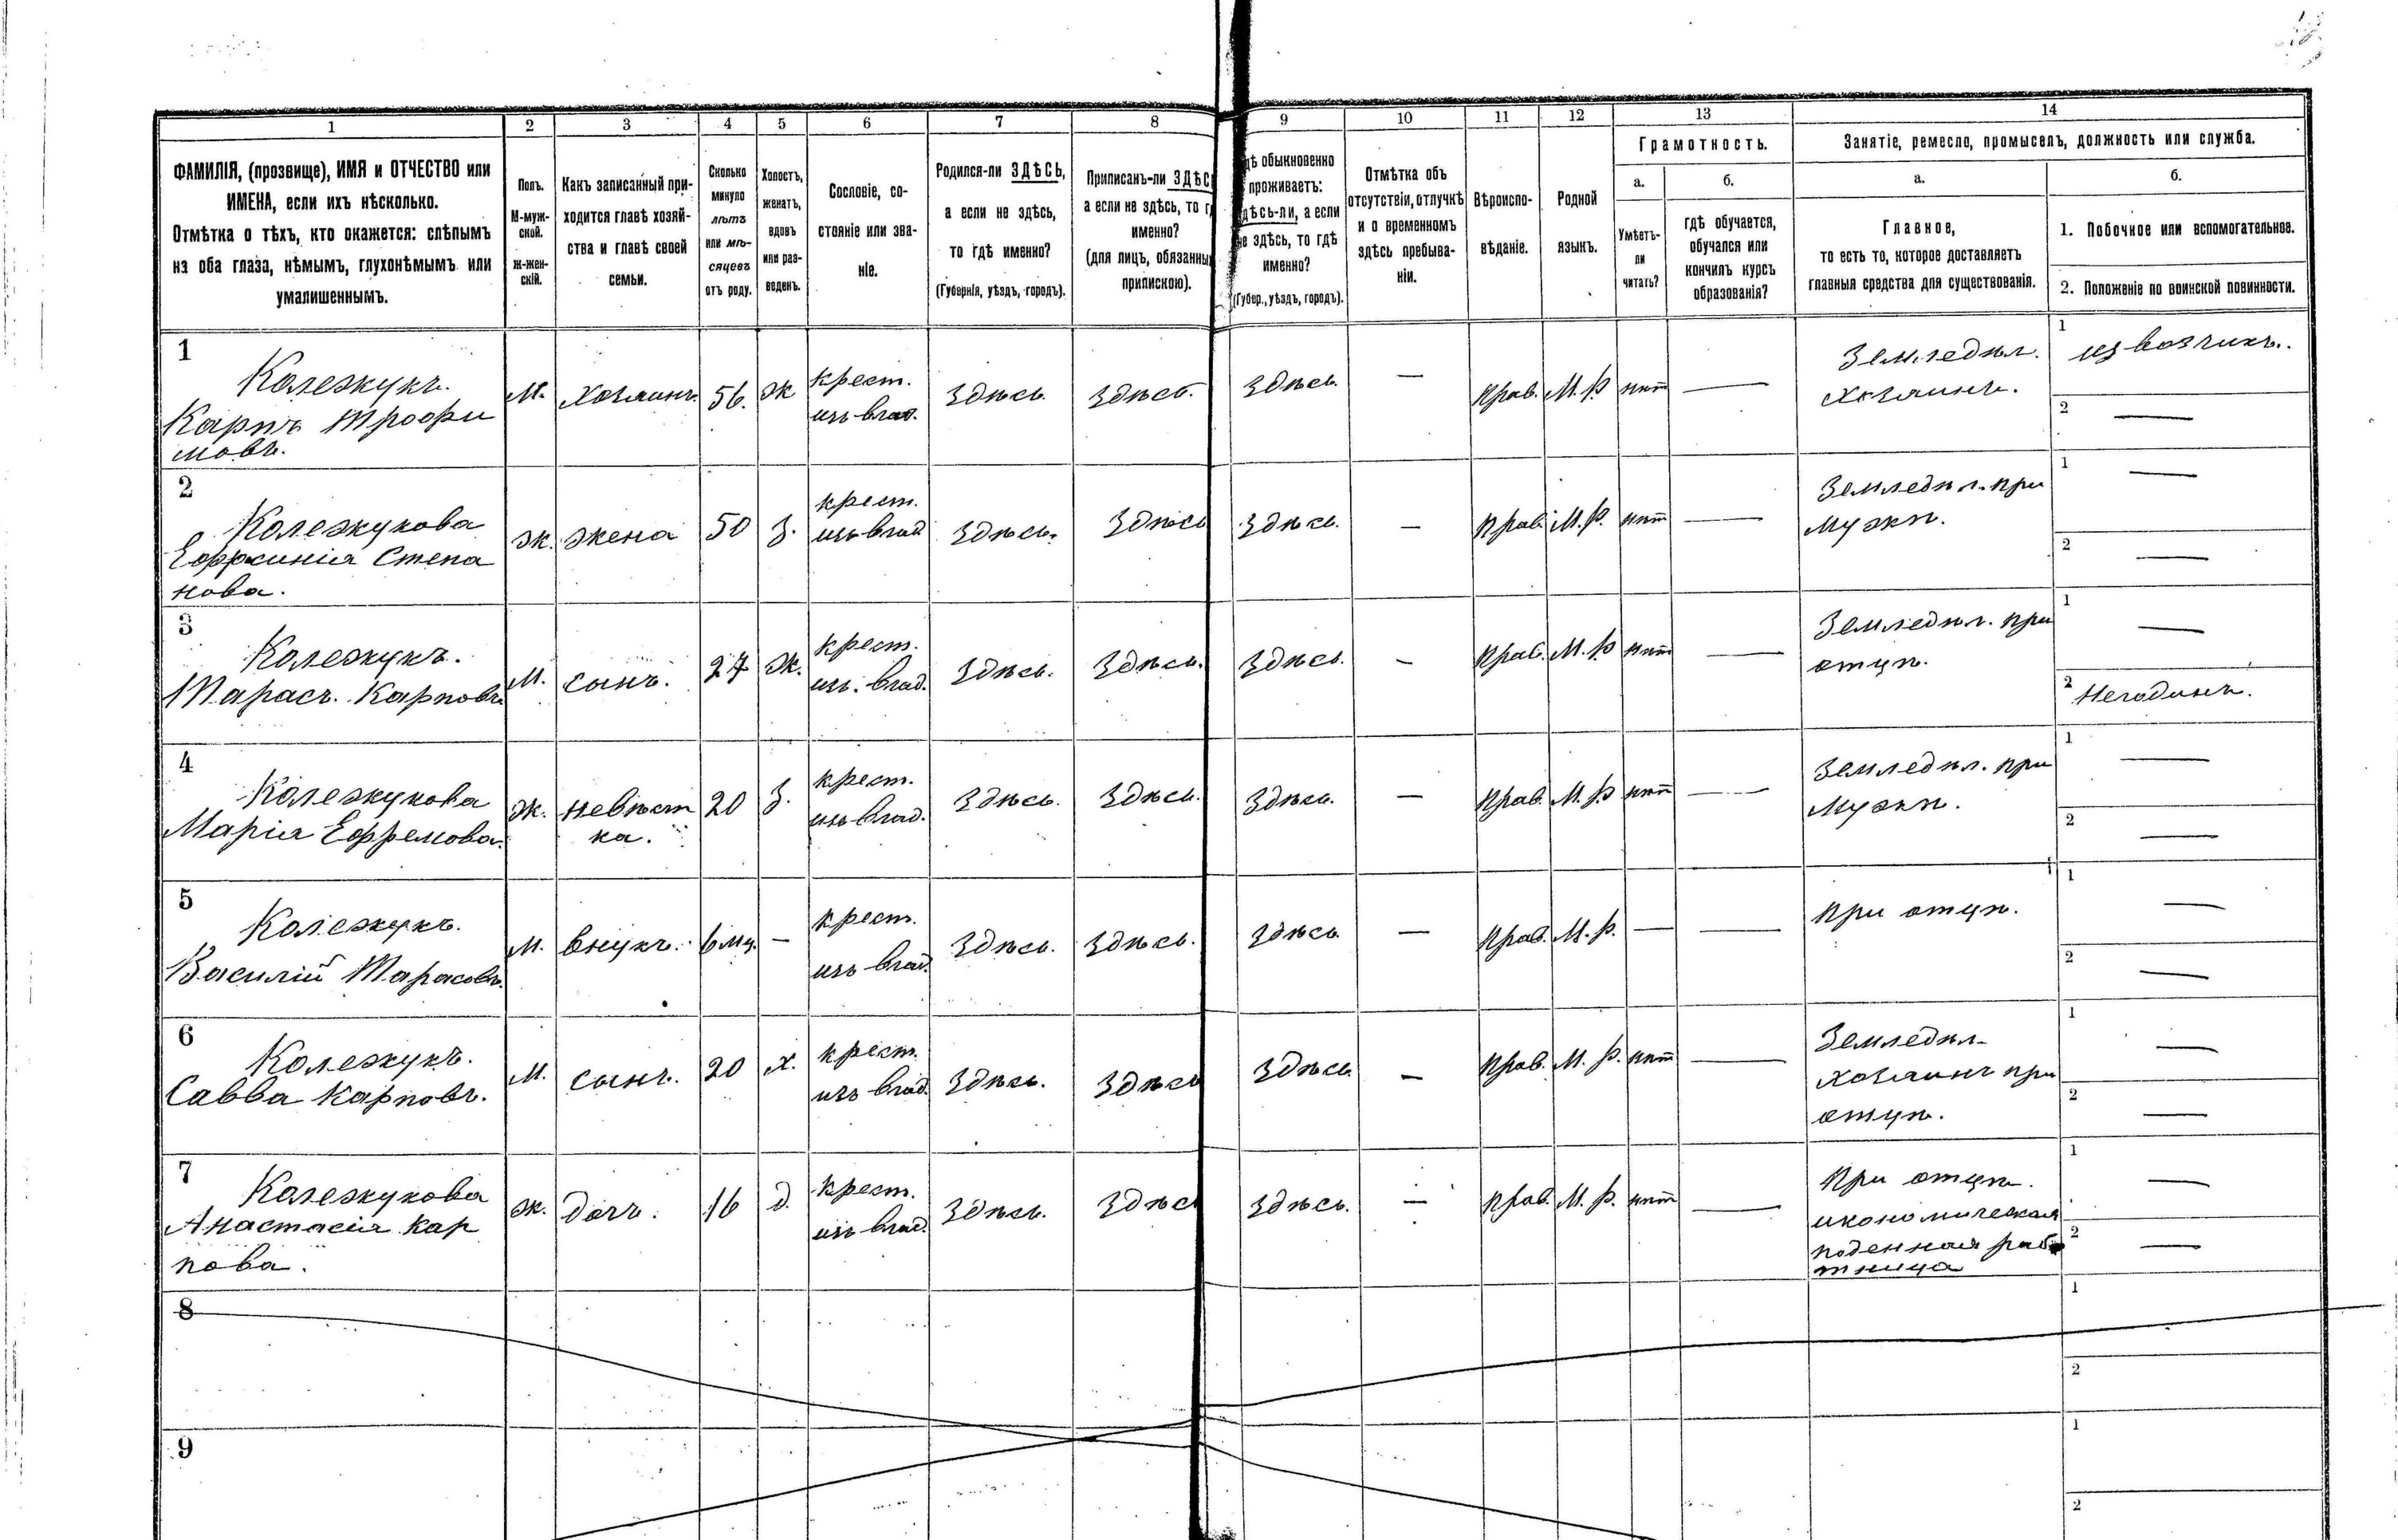 1 2 3 4 5 6 7 8 9 10 11 12 13 14
ФАМИЛІЯ, (прозвище), ИМЯ и ОТЧЕСТВО или
ИМЕНА, если ихъ нѣсколько.
Отмѣтка о тѣхъ, кто окажется: слѣпымъ
на оба глаза, нѣмымъ, глухонѣмымъ или
умалишеннымъ.
Полъ.
М-муж-
ской.
Ж-жен-
скій.
Какъ записанный при-
ходится главѣ хозяй-
ства и главѣ своей
семьи.
Сколько
минуло
лѣтъ
или мѣ-
сяцевъ
отъ роду.
Холостъ,
женатъ,
вдовъ
или раз-
веденъ.
Сословіе, со-
стояніе или зва-
ніе.
Родился-ли ЗДѢСЬ,
а если не здѣсь,
то гдѣ именно?
(Губернія, уѣздъ, городъ).
Приписанъ-ли ЗДѢС
а если не здѣсь, то г
именно?
(для лицъ, обязанны
припискою).
дѣ обыкновенно
проживаетъ:
дѣсь-ли, а если
не здѣсь, то гдѣ
именно?
(Губер., уѣздъ, городъ).
Отмѣтка объ
отсутствіи, отлучкѣ
и о временномъ
здѣсь пребыва-
ніи.
Вѣроиспо-
вѣданіе.
Родной
языкъ.
Грамотность.
а.
Умѣетъ-
ли
читать?
б.
гдѣ обучается,
обучался или
кончилъ курсъ
образованія?
Занятіе, ремесло, промыселъ, должность или служба.
а.
Главное,
то есть то, которое доставляетъ
главныя средства для существованія.
б.
1. Побочное или вспомогательное.
2. Положеніе по воинской повинности.
1
Колежукъ.
Карпъ Трофи
мовъ.
М. Хозяинъ. 56. Ж
крест.
изъ влад.
Здѣсь. Здѣсь. Здѣсь. — Прав. М.Р нѣт —
Земледѣл.
Хозяинъ.
1 извозчикъ.
2 —
2
Колежукова
Ефросинія Степа
нова.
Ж. жена 50 З.
крест.
изъ влад
Здѣсь. Здѣсь Здѣсь. — Прав. М.Р. нѣт —
Земледѣл. при
мужѣ.
1 —
2 —
3
Колежукъ.
Тарасъ. Карповъ
М. сынъ. 27 Ж.
крест.
изъ. влад.
Здѣсь. Здѣсь. Здѣсь. — Прав. М.Р нѣт —
Земледѣл. при
отцѣ.
1 —
2 Негодинъ.
4
Колежукова
Марія Ефремова.
Ж. невѣст
ка.
20 З.
крест.
изъ влад.
Здѣсь. Здѣсь. Здѣсь. — Прав. М.Р нѣт —
Земледѣл. при
мужѣ.
1 —
2 —
5
Колежукъ.
Василій Тарасовъ.
М. внукъ. 6 мц. —
крест.
изъ влад.
Здѣсь. Здѣсь. Здѣсь — Прав. М.Р. — —
При отцѣ.
1 —
2 —
6
Колежукъ.
Савва Карповъ.
М. сынъ. 20 Х.
крест.
изъ влад.
Здѣсь. Здѣсь Здѣсь — Прав. М.Р. нѣт —
Земледѣл-
Хозяинъ при
отцѣ.
1 —
2 —
7
Колежукова
Анастасія Кар
пова.
Ж. дочъ. 16 д.
крест.
изъ влад.
Здѣсь. Здѣс Здѣсь. — Прав. М.Р. нѣт —
При отцѣ.
икономическая
поденная рабо
тница
1 —
2 —
8
1
2
9
1
2